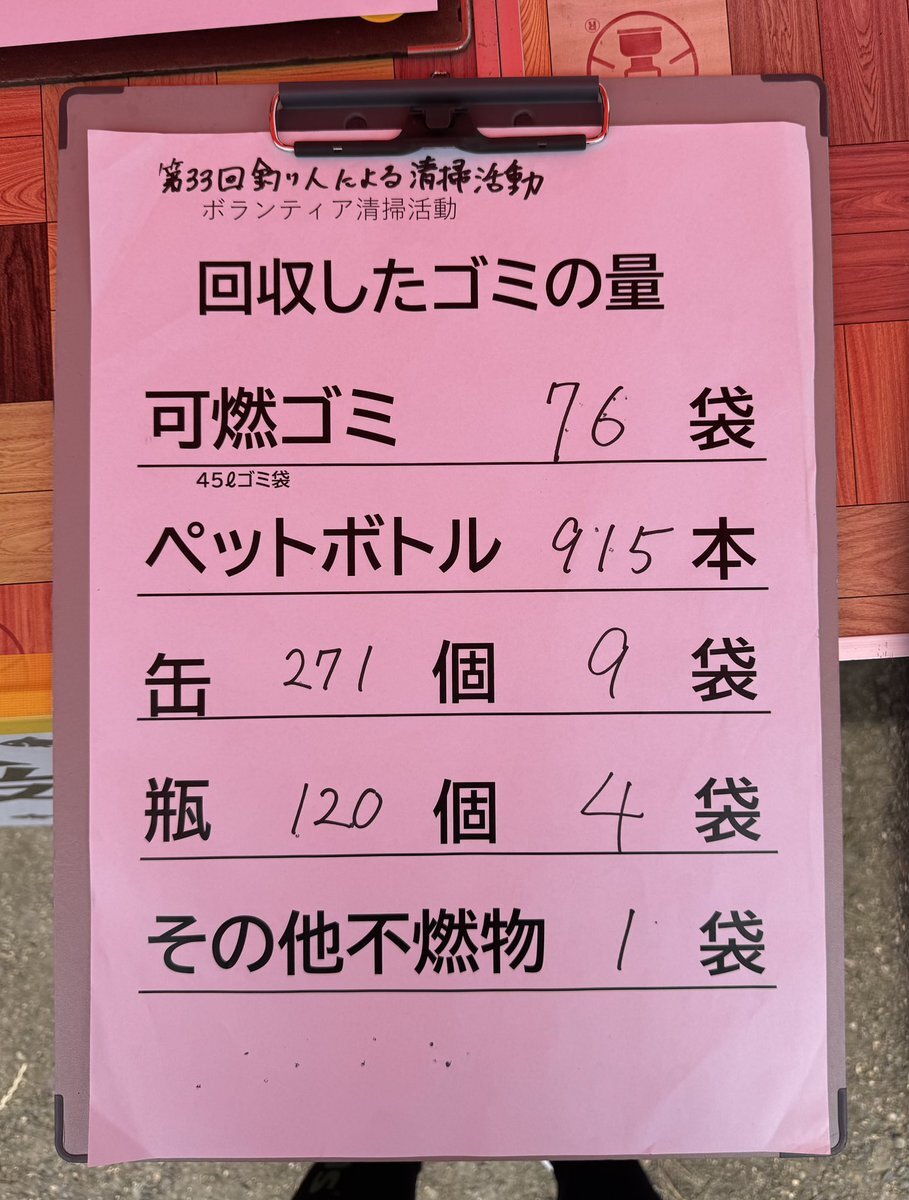 第33回釣り人による清掃活動
ボランティア清掃活動
回収したゴミの量
可燃ゴミ 76 袋
45ℓゴミ袋
ペットボトル 915 本
缶 271 個 9 袋
瓶 120 個 4 袋
その他不燃物 1 袋